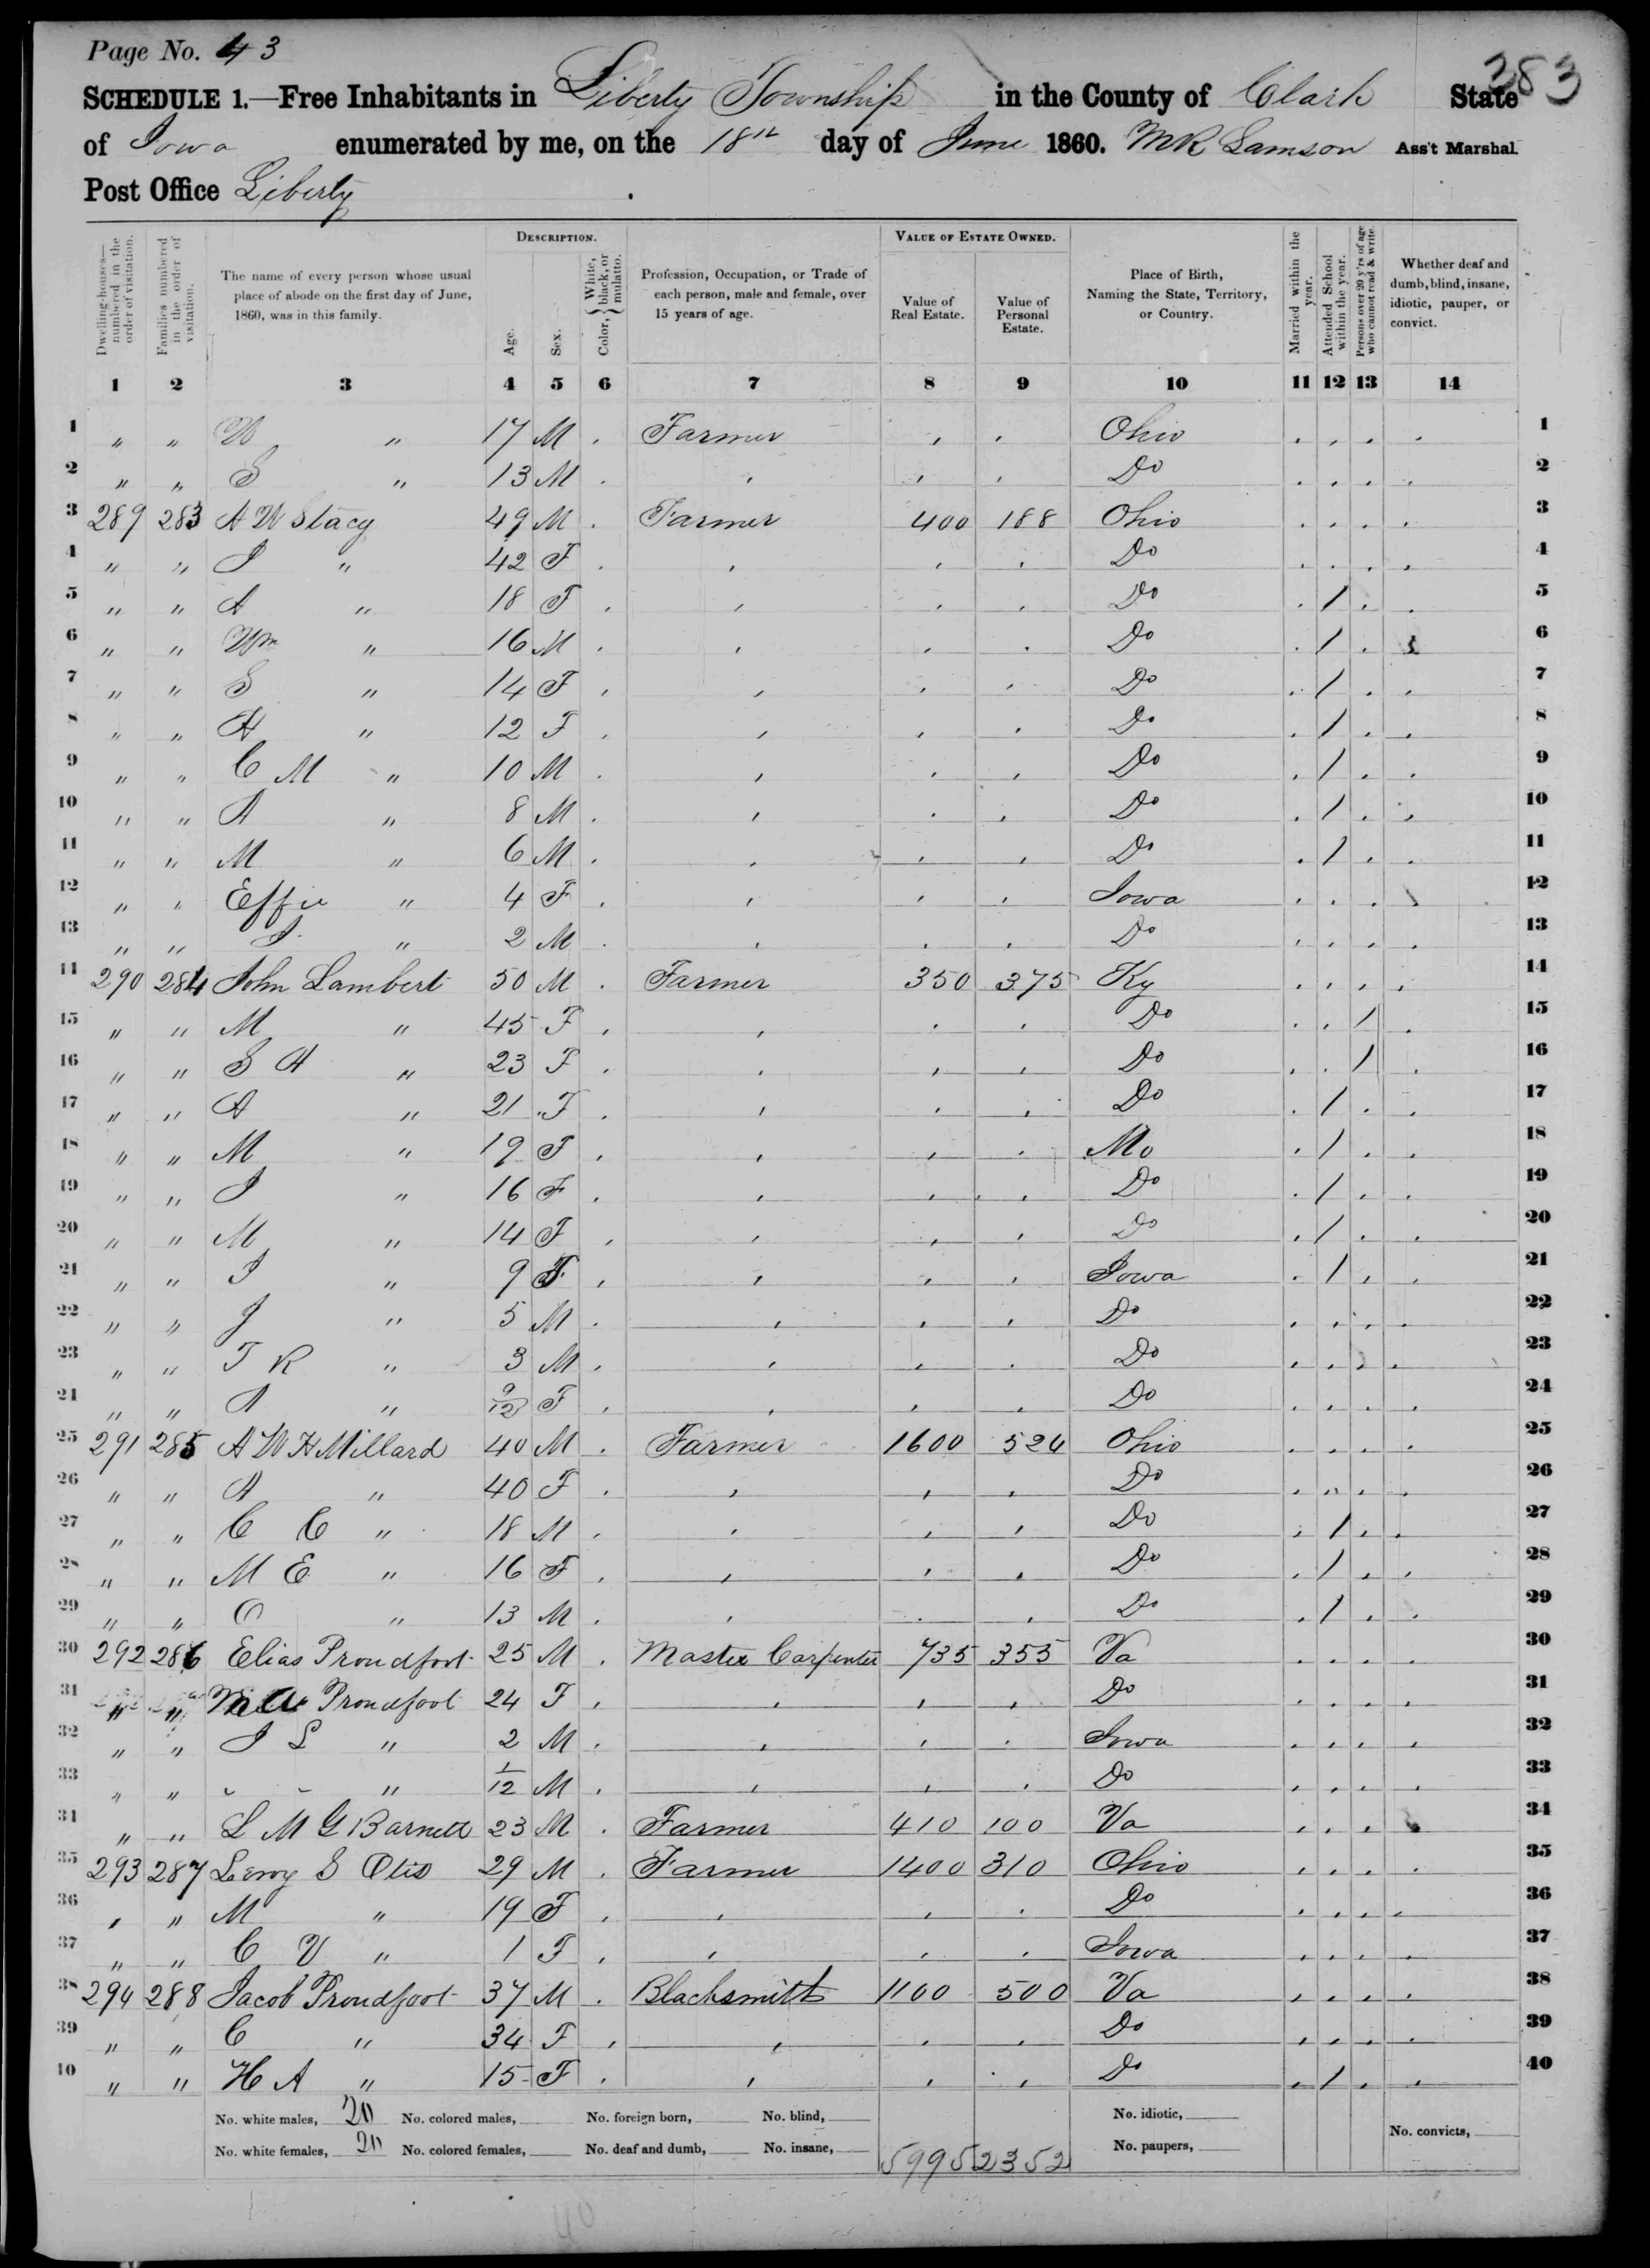 Page No. 43
283
SCHEDULE 1.—Free Inhabitants in Liberty Township in the County of Clark State
of Iowa enumerated by me, on the 18th day of June 1860. M R Samson Ass't Marshal.
Post Office Liberty
Dwelling-houses—numbered in the order of visitation.
Families numbered in the order of visitation.
The name of every person whose usual place of abode on the first day of June, 1860, was in this family.
DESCRIPTION.
Age.
Sex.
Color, { White, black, or mulatto.
Profession, Occupation, or Trade of each person, male and female, over 15 years of age.
VALUE OF ESTATE OWNED.
Value of Real Estate.
Value of Personal Estate.
Place of Birth, Naming the State, Territory, or Country.
Married within the year.
Attended School within the year.
Persons over 20 y'rs of age who cannot read & write.
Whether deaf and dumb, blind, insane, idiotic, pauper, or convict.
1 2 3 4 5 6 7 8 9 10 11 12 13 14
1 " " W " 17 M Farmer Ohio 1
2 " " S " 13 M Do 2
3 289 283 A W Stacy 49 M Farmer 400 188 Ohio 3
4 " " J " 42 F Do 4
5 " " A " 18 F Do / 5
6 " " Wm " 16 M Do / 6
7 " " S " 14 F Do / 7
8 " " H " 12 F Do / 8
9 " " C M " 10 M Do / 9
10 " " A " 8 M Do / 10
11 " " M " 6 M Do / 11
12 " " Effie " 4 F Iowa 12
13 " " J " 2 M Do 13
14 290 284 John Lambert 50 M Farmer 350 375 Ky 14
15 " " M " 45 F Do / 15
16 " " S A " 23 F Do / 16
17 " " A " 21 F Do / 17
18 " " M " 19 F Mo / 18
19 " " J " 16 F Do / 19
20 " " M " 14 F Do / 20
21 " " J " 9 F Iowa / 21
22 " " J " 5 M Do 22
23 " " T R " 3 M Do 23
24 " " A " 9/12 F Do 24
25 291 285 A W H Millard 40 M Farmer 1600 524 Ohio 25
26 " " A " 40 F Do 26
27 " " C C " 18 M Do / 27
28 " " M E " 16 F Do / 28
29 " " O " 13 M Do / 29
30 292 286 Elias Proudfoot 25 M Master Carpenter 735 355 Va 30
31 " " Proudfoot 24 F Do 31
32 " " J S " 2 M Iowa 32
33 " " " 1/12 M Do 33
34 " " L M G Barnett 23 M Farmer 410 100 Va 34
35 293 287 Leroy S Otis 29 M Farmer 1400 310 Ohio 35
36 " " M " 19 F Do 36
37 " " C V " 1 F Iowa 37
38 294 288 Jacob Proudfoot 37 M Blacksmith 1100 500 Va 38
39 " " C " 34 F Do 39
40 " " H A " 15 F Do / 40
No. white males, 20 No. colored males, No. foreign born, No. blind, No. idiotic,
No. white females, 20 No. colored females, No. deaf and dumb, No. insane, 5995 2352 No. paupers, No. convicts,
40